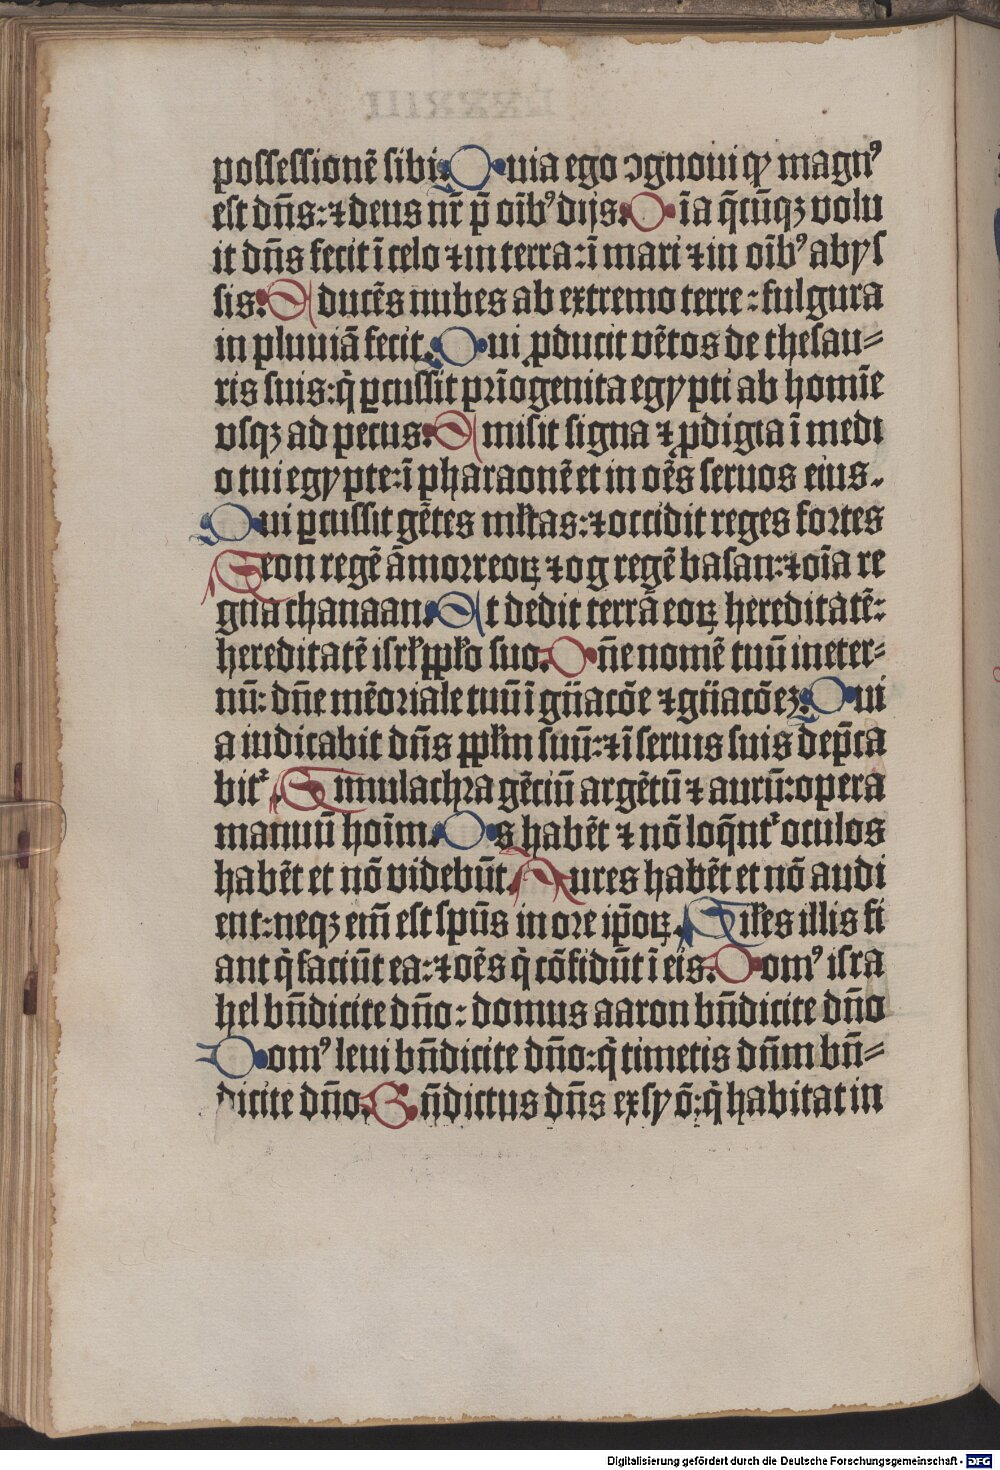 possessionē sibi. Quia ego ꝯgnoui qꝫ magnꝰ
est dn̄s: ⁊ deus nr̄ p̄ oīb' dijs. Oīa q̄cūqꝫ volu
it dn̄s fecit ī celo ⁊ in terra: ī mari ⁊ in oīb' abys
sis. Aducēs nubes ab extremo terre: fulgura
in pluuiā fecit. Qui ꝓducit vētos de thesau=
ris suis: q̇ ꝑcussit prīogenita egypti ab homīe
vsqꝫ ad pecus. Amisit signa ⁊ ꝓdigia ī medi
o tui egypte: ī pharaonē et in oēs seruos eius.
Qui ꝑcussit gētes ml̄tas: ⁊ occidit reges fortes
Seon regē āmorreoꝝ ⁊ og regē basan: ⁊ oīa re
gna chanaan. At dedit terrā eoꝝ hereditatē:
hereditatē isrł ppło suo. Dn̄e nomē tuū in eter=
nū: dn̄e mēoriale tuū ī gn̄iacōe ⁊ gn̄iacōeꝫ. Qui
a iudicabit dn̄s ppłm suū: ⁊ ī seruis suis dep̄ca
bitᷣ Simulachra gēciū argētū ⁊ aurū: opera
manuū hoīm. Os habēt ⁊ nō loq̄ntᷣ oculos
habēt et nō videbūt. Aures habēt et nō audi
ent: neqꝫ em̄ est sp̄us in ore ip̄oꝝ. Siłes illis fi
ant q̇ faciūt ea: ⁊ oēs q̇ cōfidūt ī eis. Domꝰ isra
hel bn̄dicite dn̄o: domus aaron bn̄dicite dn̄o
Domꝰ leui bn̄dicite dn̄o: q̇ timetis dn̄m bn̄=
dicite dn̄o. Bn̄dictus dn̄s ex syō: q̇ habitat in
Digitalisierung gefördert durch die Deutsche Forschungsgemeinschaft - DFG